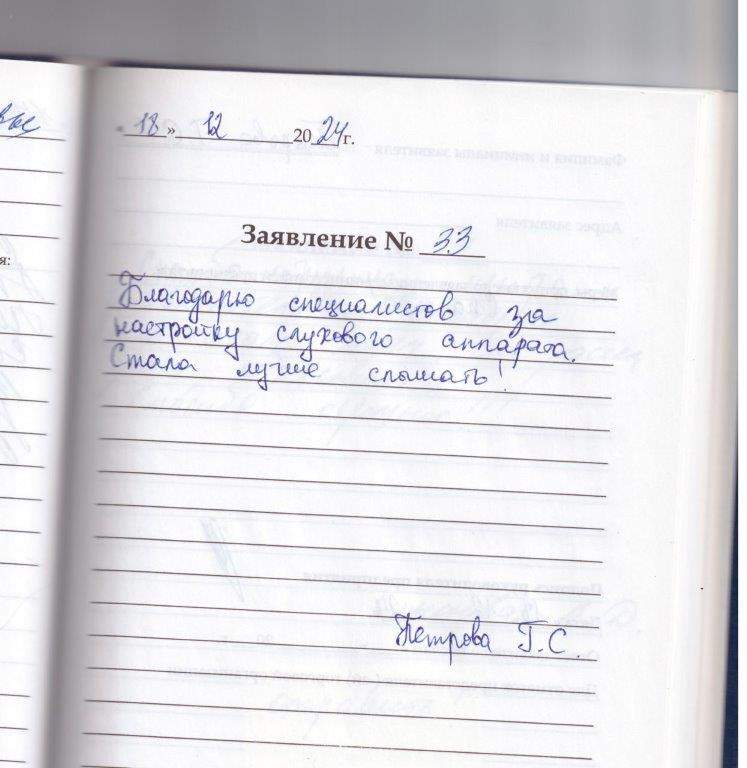 « 18 » 12 20 24 г.
Заявление № 33
Благодарю специалистов за
настройку слухового аппарата.
Стала лучше слышать!
Петрова Г.С.
я: